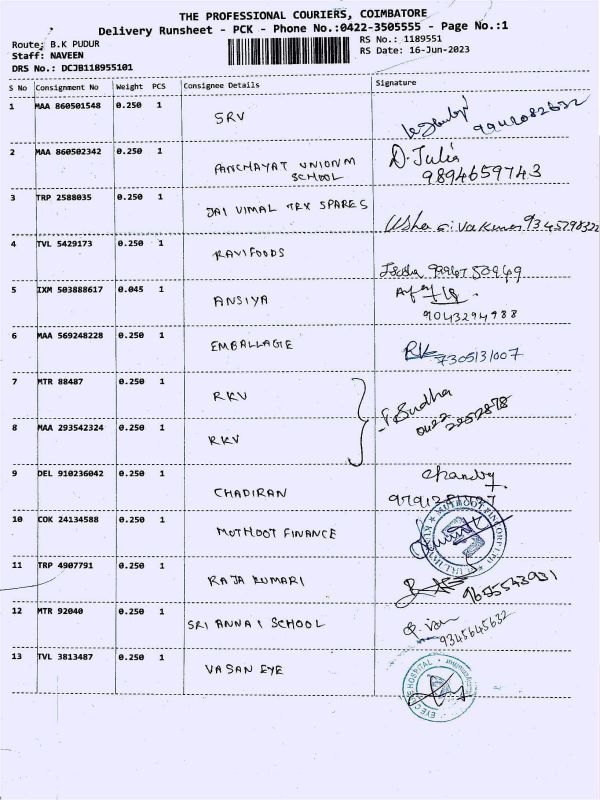 THE PROFESSIONAL COURIERS, COIMBATORE
Delivery Runsheet - PCK - Phone No.:0422-3505555 - Page No.:1
Route: B.K PUDUR
RS No.: 1189551
Staff: NAVEEN
RS Date: 16-Jun-2023
DRS No.: DCJB118955101
S No Consignment No Weight PCS Consignee Details Signature
1 MAA 860501548 0.250 1 SRV
2 MAA 860502342 0.250 1 PANCHAYAT UNION M SCHOOL D. Julia
9894659743
3 TRP 2588035 0.250 1 JAI VIMAL TEX SPARES
4 TVL 5429173 0.250 1 RAVIFOODS
5 IXM 503888617 0.045 1 ANSIYA
9043294988
6 MAA 569248228 0.250 1 EMBALLAGE RK 7305131007
7 MTR 88487 0.250 1 RKV Sudha
0422
8 MAA 293542324 0.250 1 RKV
9 DEL 910236042 0.250 1 CHADIRAN
10 COK 24134588 0.250 1 MOTHOOT FINANCE
11 TRP 4907791 0.250 1 RAJA KUMARI 9655543931
12 MTR 92040 0.250 1 SRI ANNAI SCHOOL 9345645632
13 TVL 3813487 0.250 1 VASAN EYE
EYE HOSPITAL